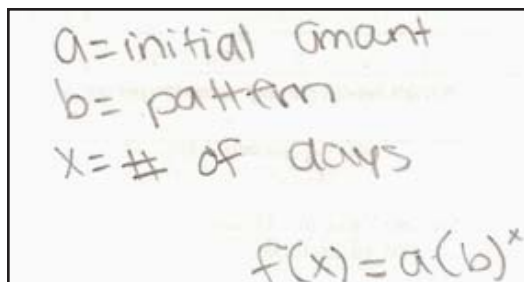 a=initial amant
b= pattern
x= # of days
f(x)=a(b)^x